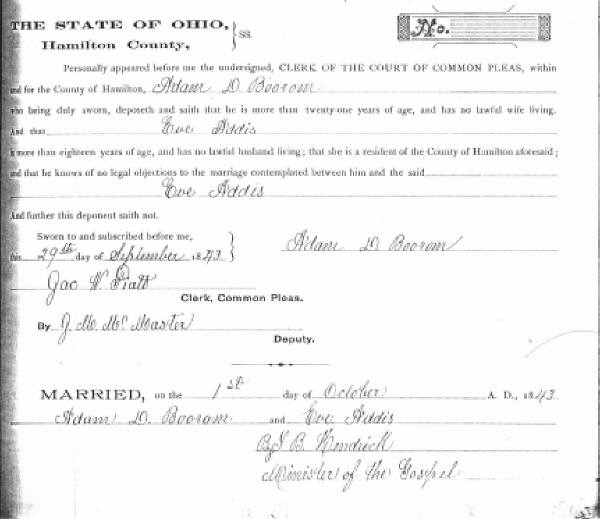 THE STATE OF OHIO,
Hamilton County, } SS.
No.
Personally appeared before me the undersigned, CLERK OF THE COURT OF COMMON PLEAS, within
and for the County of Hamilton, Adam D Booram
who being duly sworn, deposeth and saith that he is more than twenty-one years of age, and has no lawful wife living.
And that Eve Addis
is more than eighteen years of age, and has no lawful husband living; that she is a resident of the County of Hamilton aforesaid;
and that he knows of no legal objections to the marriage contemplated between him and the said
Eve Addis
And further this deponent saith not.
Sworn to and subscribed before me,
this 29th day of September 1843 } Adam D Booram
Jac W. Piatt
Clerk, Common Pleas.
By J. M. Mc Master
Deputy.
MARRIED, on the 1st day of October A. D., 1843
Adam D. Booram and Eve Addis
By J B. Kendrick
Minister of the Gospel